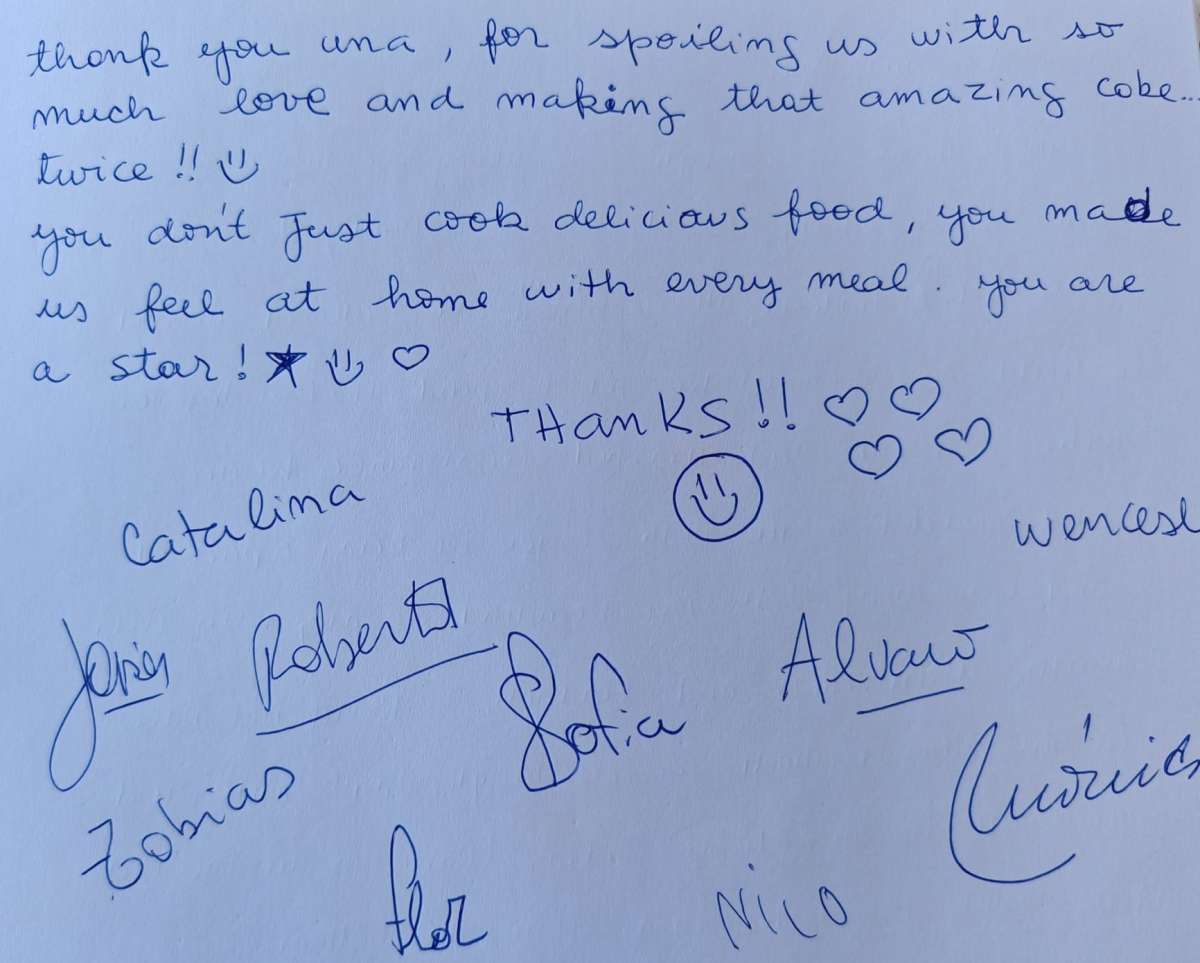 thank you una, for spoiling us with so
much love and making that amazing cake...
twice!!
you don't Just cook delicious food, you made
us feel at home with every meal. you are
a star!
THanKS!!
Catalina
wencesl
Javier Roberta
Sofia Alvaro
Tobias Mónica
flor NICO